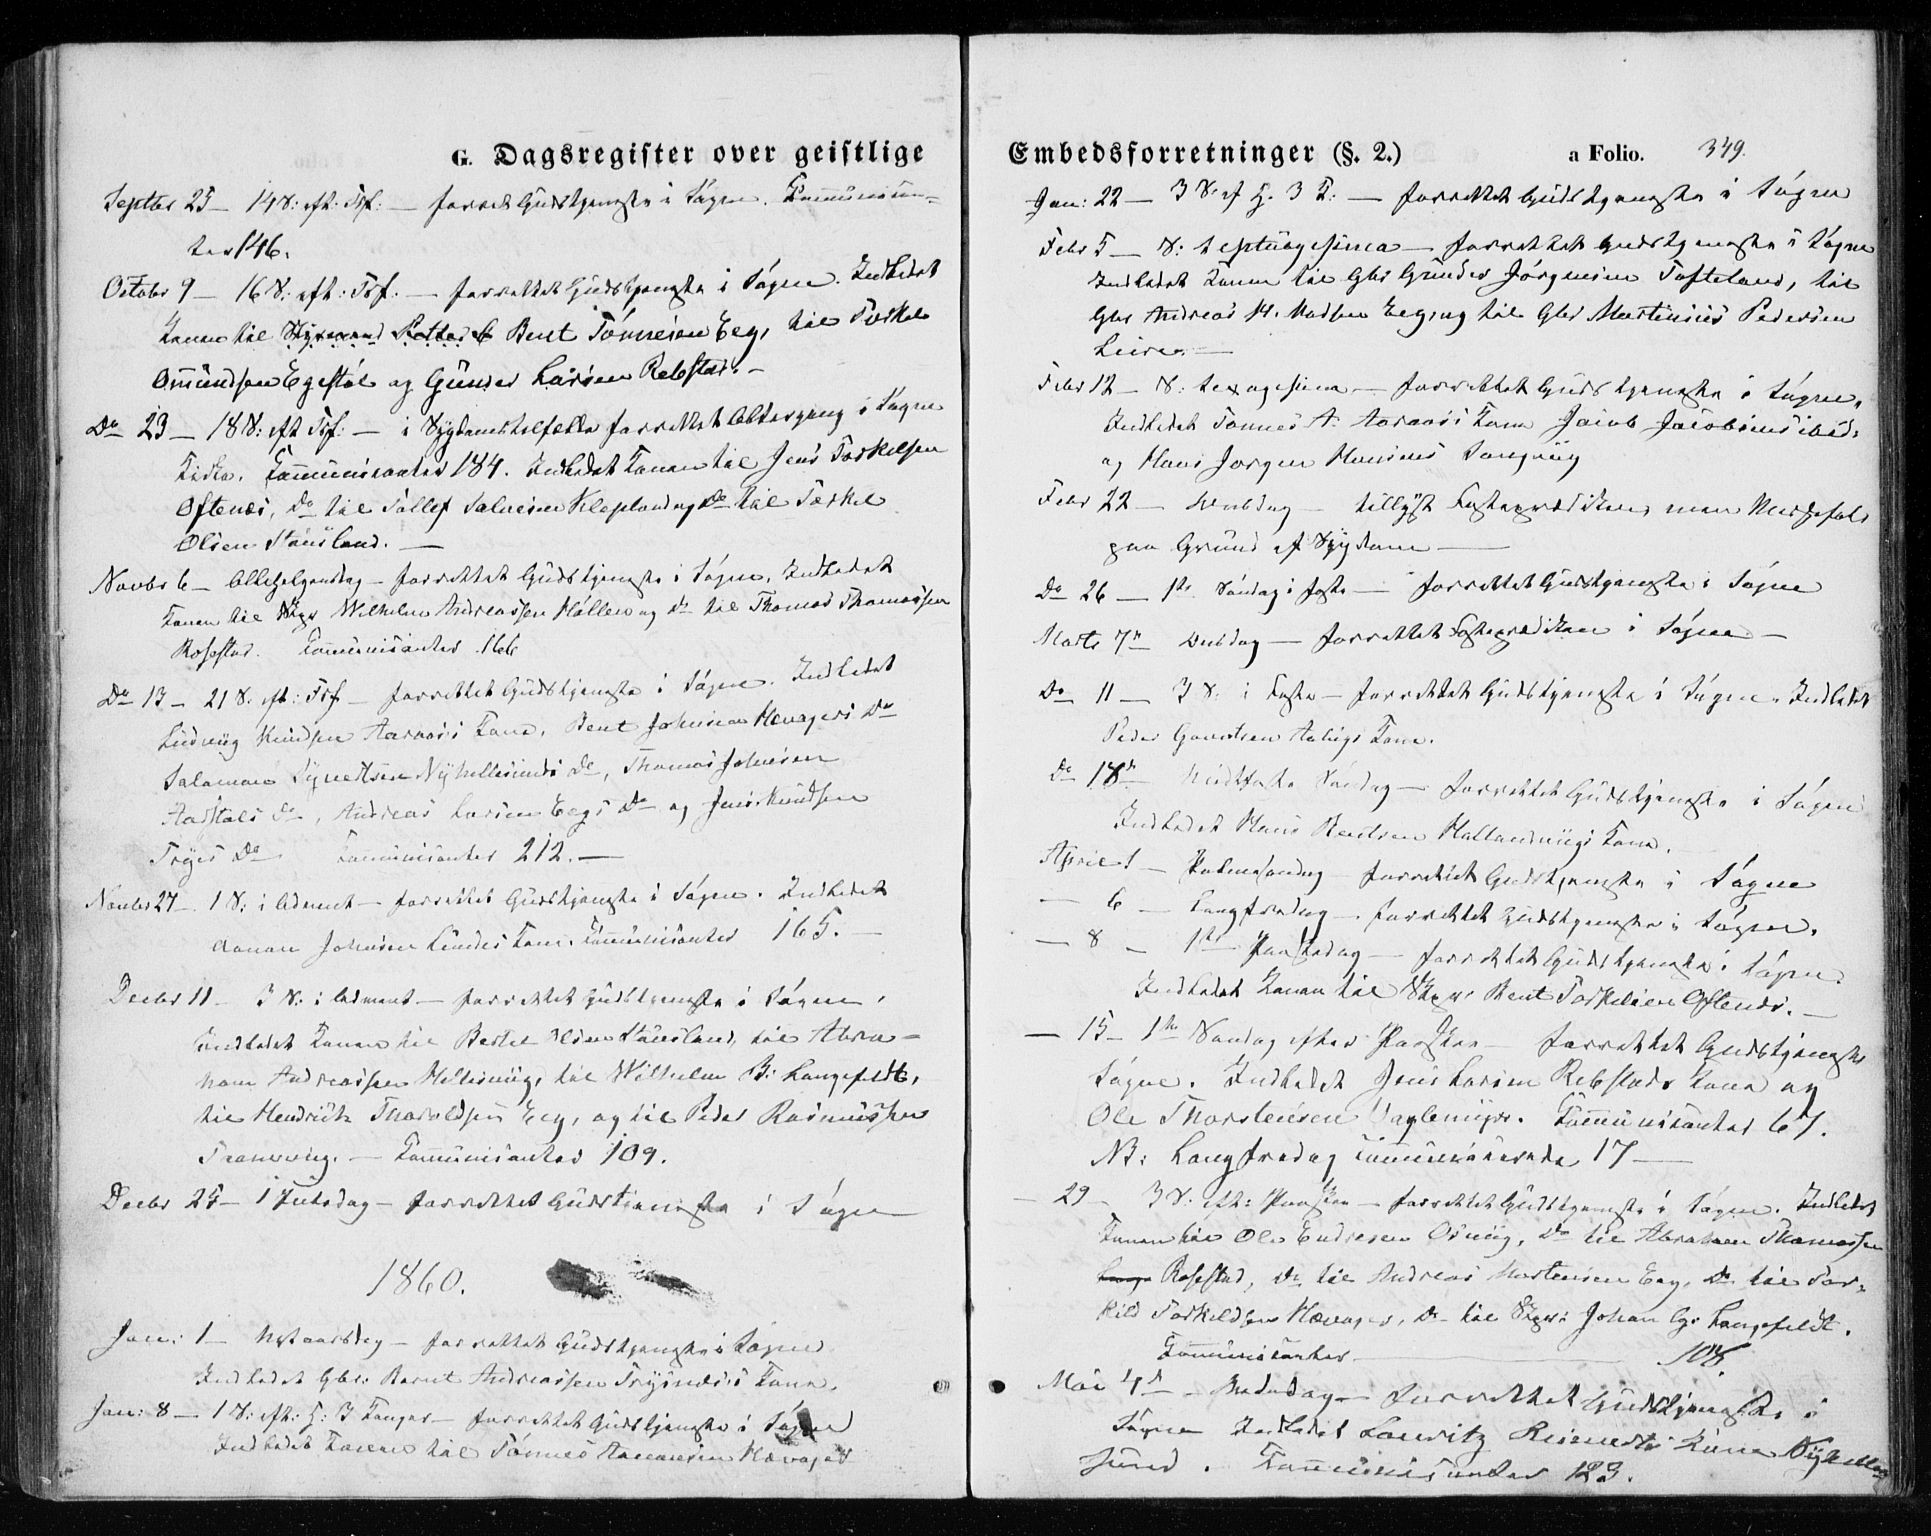 G. Dagsregister over geistlige
Septbr 25 – 14 S: eft: Trf: – forret Gudstjeneste i Søgne. Communican-
ter 146.
Octobr 9 – 16 S: eft: Trf. – forrettet Gudstjeneste i Søgne. Indledet
Konen til Bent Tönnesen Eeg, til Torkel
Omundsen Egestöl og Gunder Larsen Rebstad. –
Do 23 – 18 S: eft Trf: – i Sygdomstilfælde forrettet Altergang i Søgne
Kirke. Communicanter 184. Indledet Konen til Jens Torkelsen
Oftenes, Do til Tollef Salvesen Klepland og Do til Torkel
Olsen Stausland. –
Novbr 6 – Allehelgensdag – forrettet Gudstjeneste i Søgne. Indledet
Konen til Wilhelm Andreassen Höllen og Do til Thomas Thomassen
Rosstad. Communicanter 166
Do 13 – 21 S: eft: Trf – forrettet Gudstjeneste i Søgne. Indledet
Ludvig Knudsen Aaroes's Kone, Bent Johnsen Havagers Do
Salomon Sÿvertsen Nÿhellesunds Do, Thomas Johnsen
Do, Andreas Larsen Eegs Do og Jens Knudsen
Trÿes Do Communicanter 212. –
Novbr 27 – 1 S: i Advent – forrettet Gudstjeneste i Søgne. Indledet
Aanon Johnsen Lundes Kone. Communicanter 165. –
Decbr 11 – 3 S: i Advent – forrettet Gudstjeneste i Søgne.
Indledet Konen til Bertel Olsen Stausland, til Abra-
ham Andreassen Hellesvig, til Wilhelm B: Langefeldt,
til Hendrick Tharaldsen Eeg, og til Peder Rasmussen
Tranevig. – Communicanter 109.
Decbr 25 – 1 Juledag – forrettet Gudstjeneste i Søgne
1860.
Jan: 1 – Nytaarsdag – forrettet Gudstjeneste i Søgne
Indledet Gbr: Bernt Andreassen Trysnes's Kone.
Jan: 8 – 1 S: eft: H: 3 Konger – forrettet Gudstjeneste i Søgne
Indledet Konen til Tönnes Aanonsen Havager
Embedsforretninger (§. 2.)
a Folio. 349.
Jan: 22 – 3 S. ef H. 3 K: – forrettet Gudstjeneste i Søgne
Febr 5 – S: septuagesima – forrettet Gudstjeneste i Søgne
Indledet Konen til Gbr Gunder Jörgensen Tofteland, til
Gbr Andreas M. Madsen Eeg, og til Gbr Martinius Pedersen
Leire. –
Febr 12 – S: sexagesima – forrettet Gudstjeneste i Søgne.
Indledet Tönnes A. Aaroes's Kone Jacob Jacobsens ibid:
og Hans Jørgen Hansens Langvig
Febr 22 – Onsdag – tillyst Fasteprædiken, men Messefald
paa Grund af Sygdom –
Do 26 – 1ste Søndag i Faste – forrettet Gudstjeneste i Søgne
Marts 7de Onsdag – forrettet Fasteprædiken i Søgne –
Do 11 – 3 S. i Faste – forrettet Gudstjeneste i Søgne. Indledet
Peder Gundersen Kone.
Do 18de Midtfaste Søndag – forrettet Gudstjeneste i Søgne
Indledet Hans Bentsen Hallandvigs Kone.
April 1 – Palmesøndag – forrettet Gudstjeneste i Søgne
– 6 – Langfredag – forrettet Gudstjeneste i Søgne.
– 8 – 1ste Paaskedag – forrettet Gudstjeneste i Søgne
Indledet Konen til Bent Torkelsen Oftenes. –
– 15 – 1ste Søndag efter Paaske – forrettet Gudstjeneste
Søgne. Indledet Jens Larsen Rebstads Kone og
Ole Thorstensen Vaglemyr. Communicanter 67.
NB: Langfredag communicerede 17 –
– 29 – 3 S: eft: Paaske – forrettet Gudstjeneste i Søgne. Indledet
Konen til Ole Endresen Osvig, Do til Abraham Thomassen
Rosstad, Do til Andreas Mortensen Eeg, Do til Tor-
kild Torkildsen Havager, Do til Johan Langefeldt.
Communicanter – 108
Mai 4de – Bededag – forrettet Gudstjeneste i
Søgne Indledet Lauritz Kone Nÿhelle-
sund. Communicanter 123.